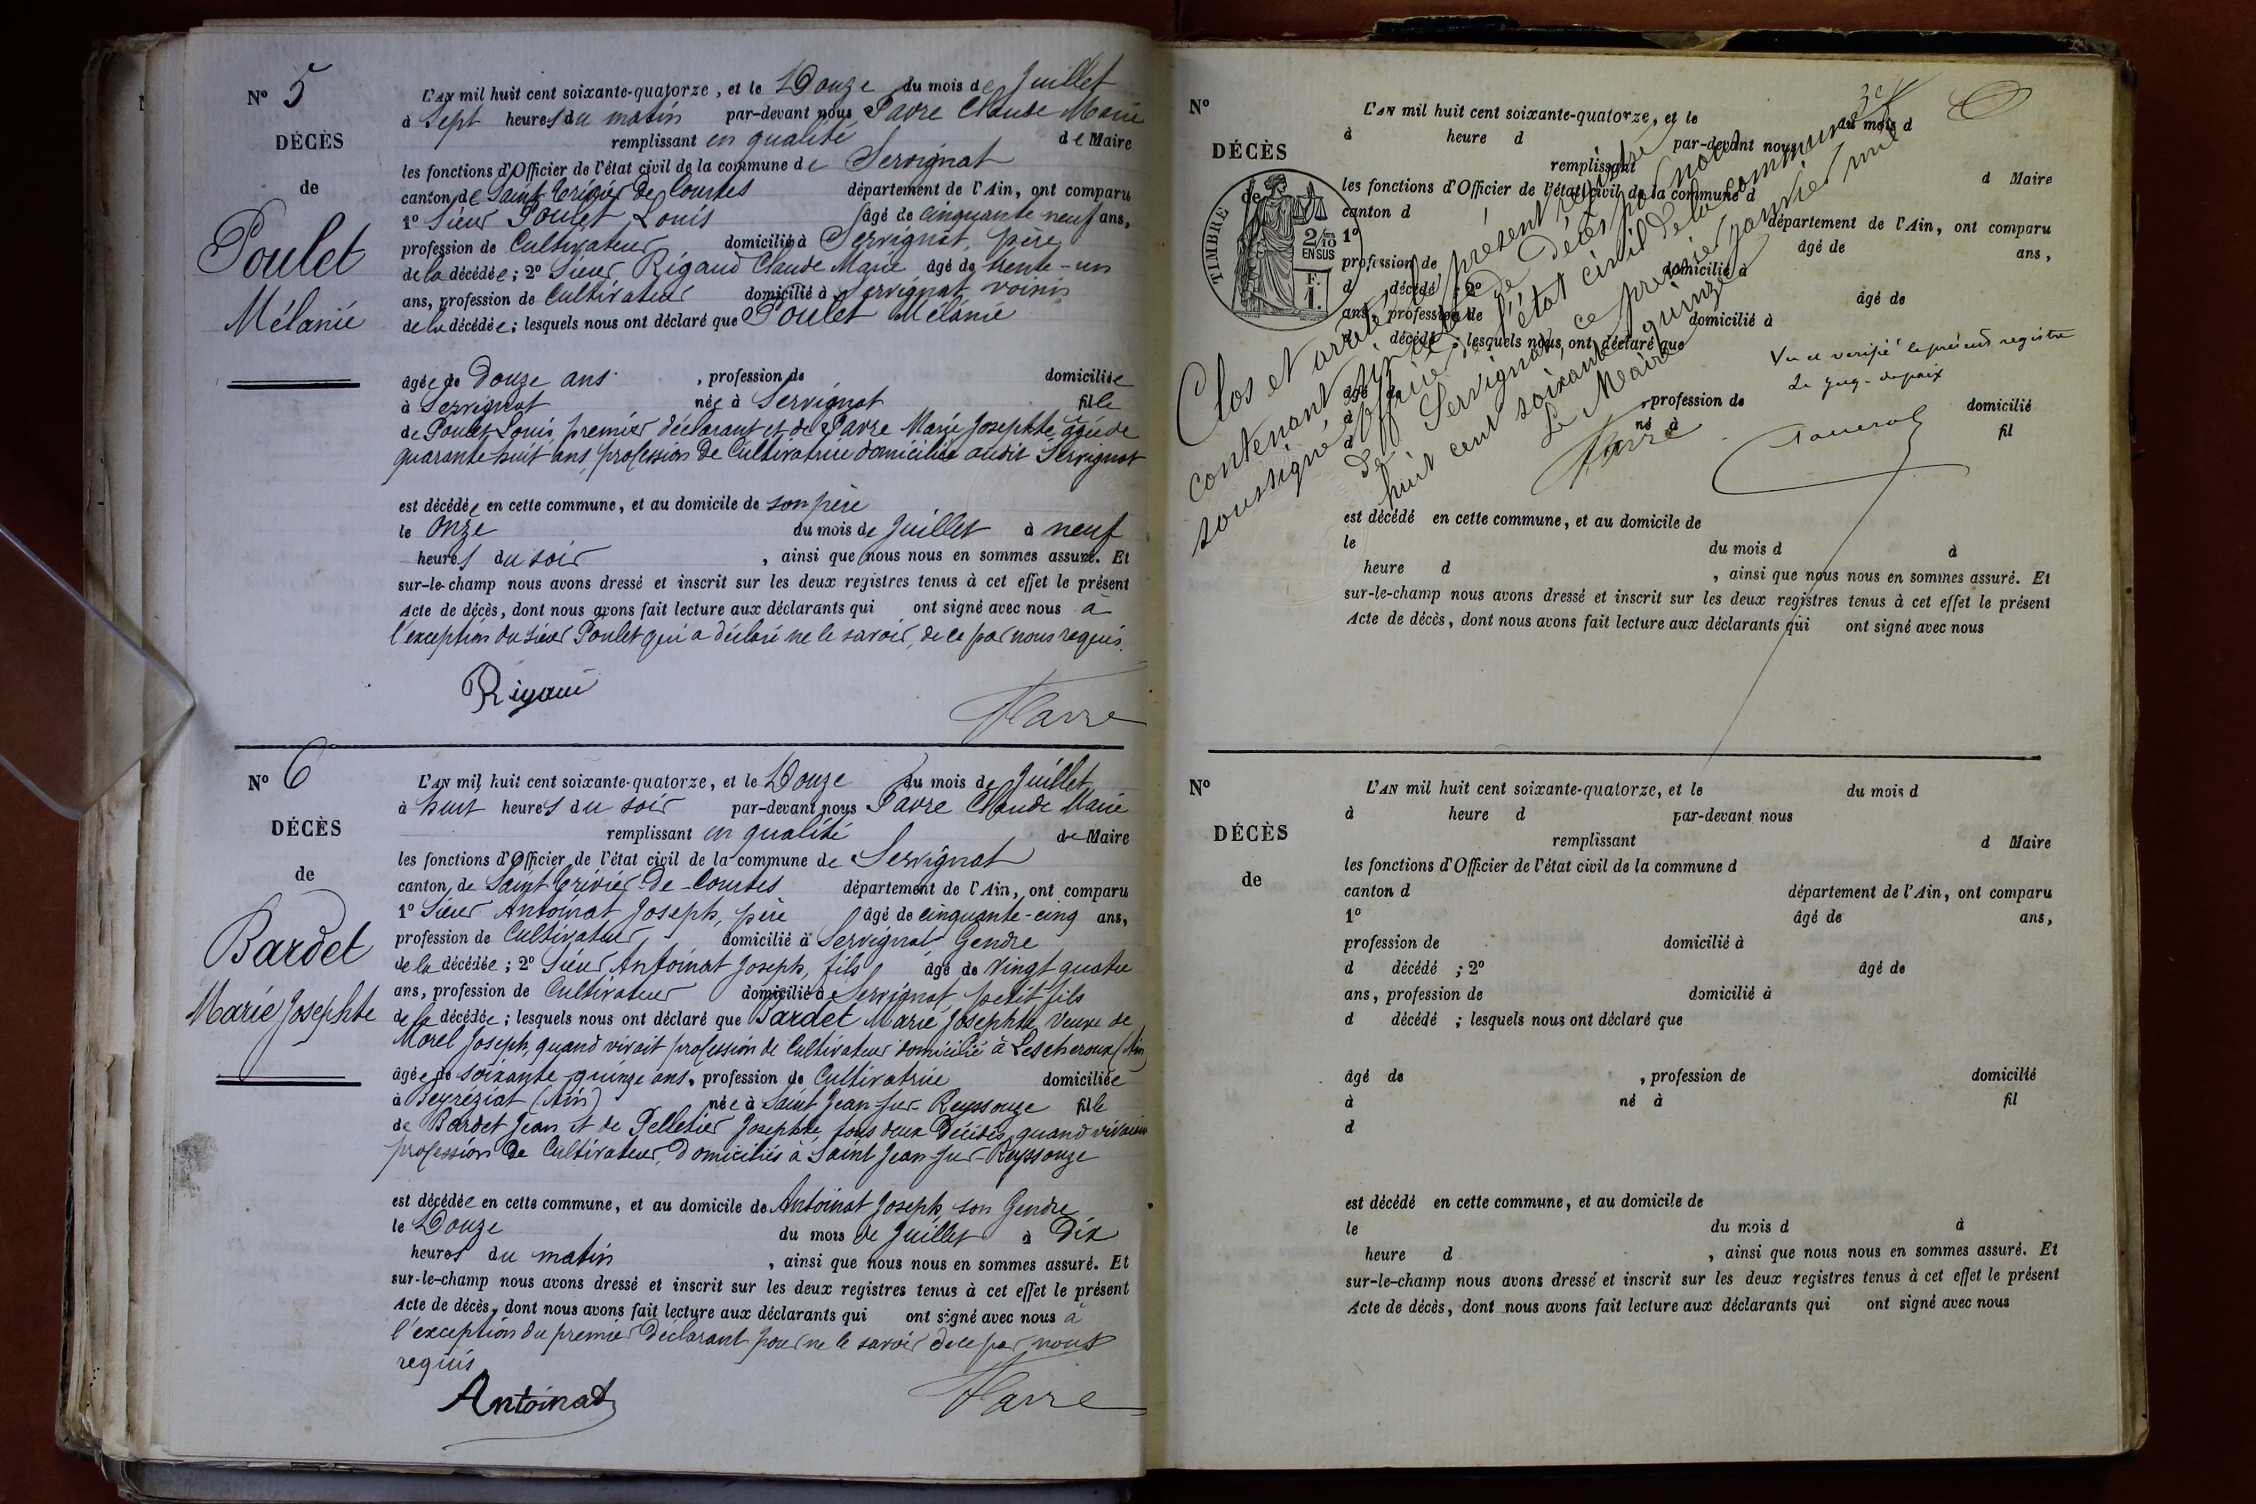 N° 5
DÉCÈS
de
Poulet
Mélanie
L'AN mil huit cent soixante-quatorze, et le Douze du mois de Juillet
à Sept heures du matin par-devant nous Favre Claude Marie
remplissant en qualité de Maire
les fonctions d'Officier de l'état civil de la commune de Servignat
canton de Saint Trivier de Courtes département de l'Ain, ont comparu
1° Sieur Poulet Louis âgé de cinquante neuf ans,
profession de Cultivateur domicilié à Servignat, père
de la décédée; 2° Sieur Rigaud Claude Marie âgé de trente-un
ans, profession de Cultivateur domicilié à Servignat voisin
de la décédée; lesquels nous ont déclaré que Poulet Mélanie
âgée de Douze ans , profession de domiciliée
à Servignat née à Servignat fille
de Poulet Louis, premier déclarant et de Favre Marie Josephte âgée de
quarante huit ans, profession de Cultivatrice domiciliée audit Servignat
est décédée en cette commune, et au domicile de son père
le Onze du mois de Juillet à neuf
heures du soir , ainsi que nous nous en sommes assuré. Et
sur-le-champ nous avons dressé et inscrit sur les deux registres tenus à cet effet le présent
Acte de décès, dont nous avons fait lecture aux déclarants qui ont signé avec nous à
l'exception du sieur Poulet qui a déclaré ne le savoir, de ce par nous requis.
Rigaud
Favre
N° 6
DÉCÈS
de
Bardet
Marie Josephte
L'AN mil huit cent soixante-quatorze, et le Douze du mois de Juillet
à huit heures du soir par-devant nous Favre Claude Marie
remplissant en qualité de Maire
les fonctions d'Officier de l'état civil de la commune de Servignat
canton de Saint Trivier-de-Courtes département de l'Ain, ont comparu
1° Sieur Antoinat Joseph, père âgé de cinquante-cinq ans,
profession de Cultivateur domicilié à Servignat Gendre
de la décédée; 2° Sieur Antoinat Joseph, fils âgé de vingt quatre
ans, profession de Cultivateur domicilié à Servignat, petit fils
de la décédée; lesquels nous ont déclaré que Bardet Marie Josephte, veuve de
Morel Joseph, quand vivait profession de Cultivateur domicilié à Lescheroux (Ain)
âgée de soixante-quinze ans, profession de Cultivatrice domiciliée
à Beyréziat (Ain) née à Saint Jean-sur-Reyssouze fille
de Bardet Jean et de Pelletier Josephte, tous deux Décédés, quand vivaient
profession de Cultivateur, Domiciliés à Saint Jean-sur-Reyssouze
est décédée en cette commune, et au domicile de Antoinat Joseph, son Gendre
le Douze du mois de Juillet à Dix
heures du matin , ainsi que nous nous en sommes assuré. Et
sur-le-champ nous avons dressé et inscrit sur les deux registres tenus à cet effet le présent
Acte de décès, dont nous avons fait lecture aux déclarants qui ont signé avec nous à
l'exception du premier Déclarant pour ne le savoir de ce par nous
requis
Antoinat
Favre
N°
DÉCÈS
de
TIMBRE
2/10
EN SUS
F.
1.
L'AN mil huit cent soixante-quatorze, et le du mois d
à heure d par-devant nous
remplissant d Maire
les fonctions d'Officier de l'état civil de la commune d
canton d département de l'Ain, ont comparu
1° âgé de ans,
profession de domicilié à
d décédé ; 2° âgé de
ans, profession de domicilié à
d décédé ; lesquels nous ont déclaré que
âgé de , profession de domicilié
à né à fil
d
Clos et arrêté le présent registre
contenant six actes de Décès par nous
soussigné officier de l'état civil de la commune
de Servignat, ce premier janvier mil
huit cent soixante quinze
Le Maire
Favre
Vu et vérifié le présent registre
Le juge-de paix
est décédé en cette commune, et au domicile de
le du mois d à
heure d , ainsi que nous nous en sommes assuré. Et
sur-le-champ nous avons dressé et inscrit sur les deux registres tenus à cet effet le présent
Acte de décès, dont nous avons fait lecture aux déclarants qui ont signé avec nous
N°
DÉCÈS
de
L'AN mil huit cent soixante-quatorze, et le du mois d
à heure d par-devant nous
remplissant d Maire
les fonctions d'Officier de l'état civil de la commune d
canton d département de l'Ain, ont comparu
1° âgé de ans,
profession de domicilié à
d décédé ; 2° âgé de
ans, profession de domicilié à
d décédé ; lesquels nous ont déclaré que
âgé de , profession de domicilié
à né à fil
d
est décédé en cette commune, et au domicile de
le du mois d à
heure d , ainsi que nous nous en sommes assuré. Et
sur-le-champ nous avons dressé et inscrit sur les deux registres tenus à cet effet le présent
Acte de décès, dont nous avons fait lecture aux déclarants qui ont signé avec nous